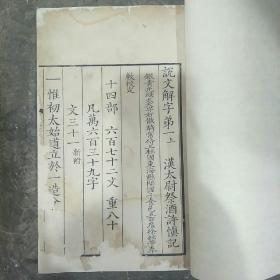 說文解字弟一上
漢太尉祭酒許慎記
銀青光祿大夫守右散騎常侍上柱國東海縣開國子食邑五百戶臣徐鉉等奉
敕校定
十四部 六百七十二文 重八十
凡萬六百三十九字
文三十一新附
一惟初太始道立於一造分